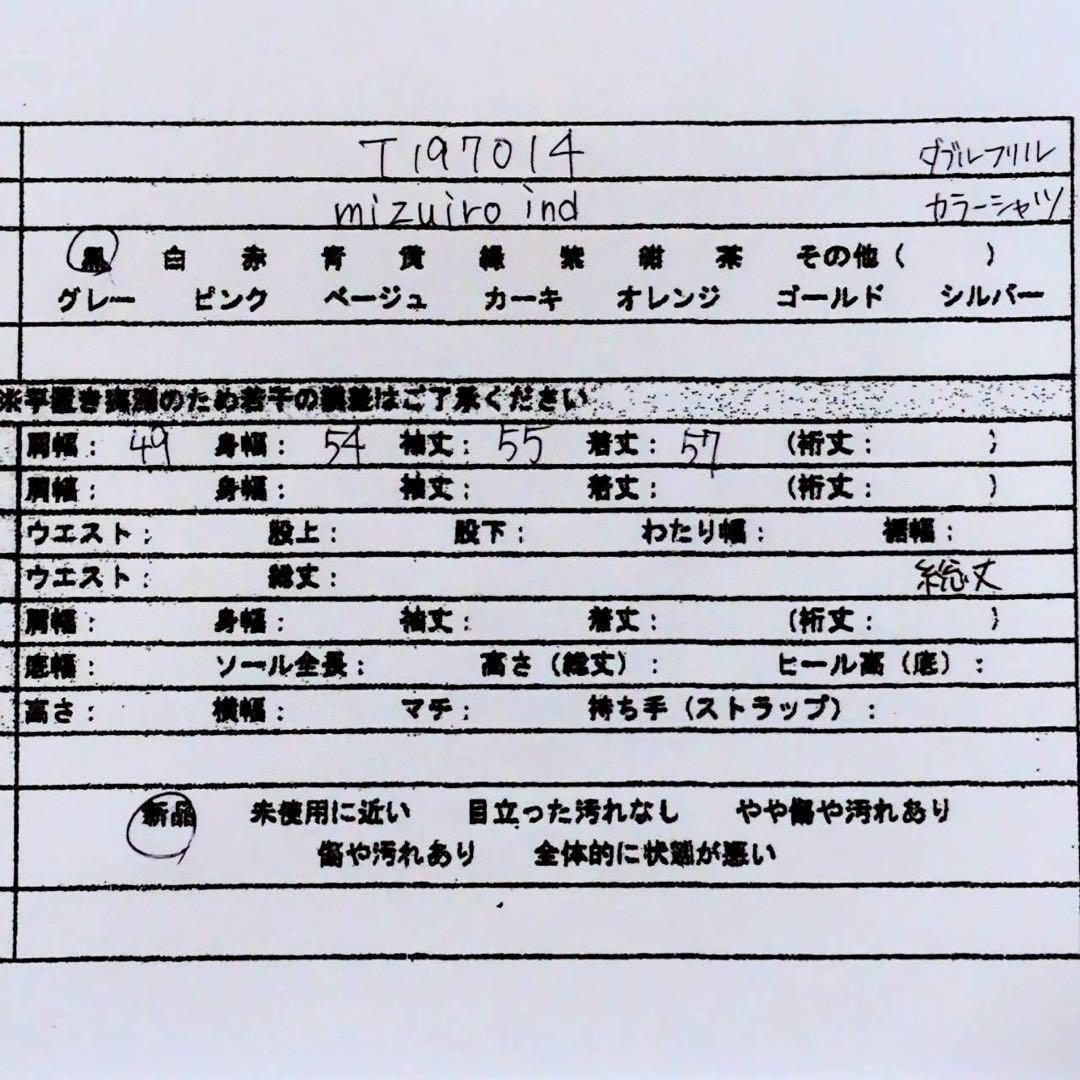 T197014 ダブルフリル
mizuiro ind カラーシャツ
黒 白 赤 青 黄 緑 紫 紺 茶 その他( )
グレー ピンク ベージュ カーキ オレンジ ゴールド シルバー
※平置き実測のため若干の誤差はご了承ください
肩幅: 49 身幅: 54 袖丈: 55 着丈: 57 (裄丈: )
肩幅: 身幅: 袖丈: 着丈: (裄丈: )
ウエスト: 股上: 股下: わたり幅: 裾幅:
ウエスト: 総丈: 総丈
肩幅: 身幅: 袖丈: 着丈: (裄丈: )
底幅: ソール全長: 高さ(総丈): ヒール高(底):
高さ: 横幅: マチ: 持ち手(ストラップ):
新品 未使用に近い 目立った汚れなし やや傷や汚れあり
傷や汚れあり 全体的に状態が悪い